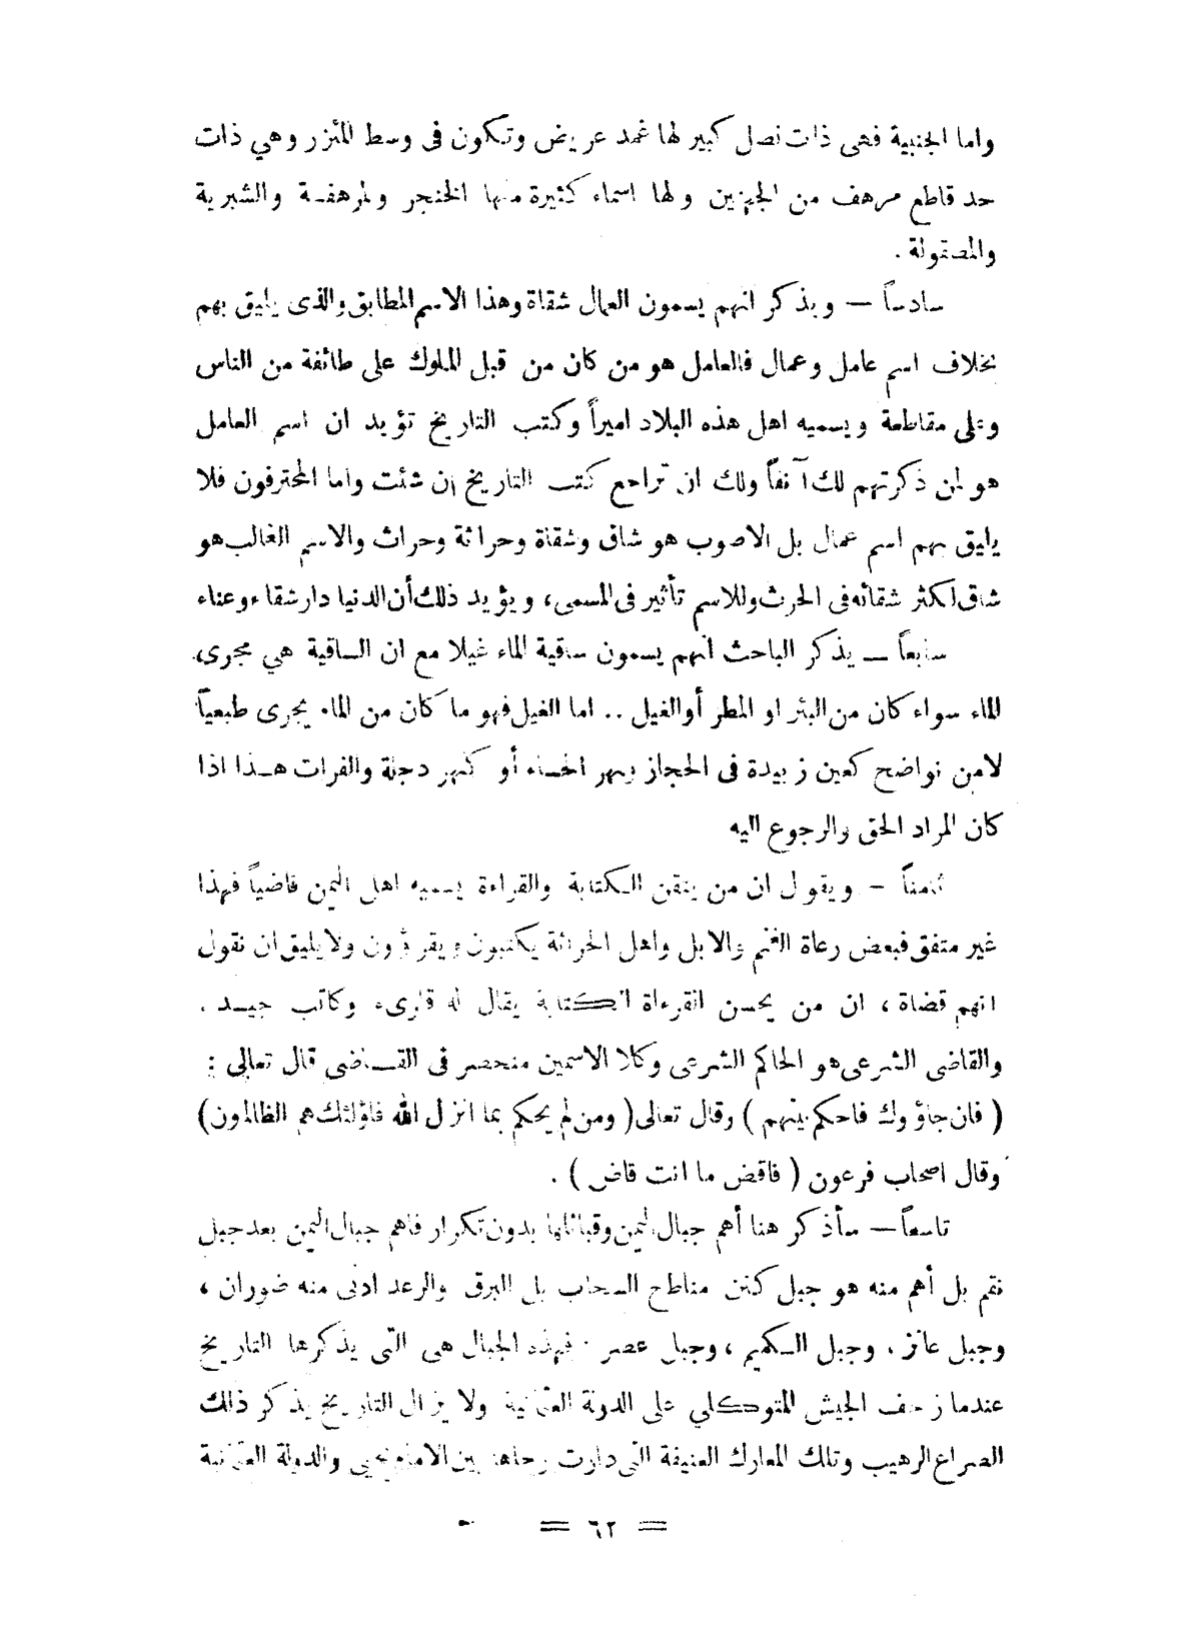 واما الجنبية فهى ذات نصل كبير لها غمد عريض وتكون فى وسط المئزر وهي ذات
حد قاطع مرهف من الجهتين ولها اسماء كثيرة منها الخنجر والمرهفة والشبرية
والمصقولة .
سادساً — ويذكر انهم يسمون العمال شقاة وهذا الاسم المطابق والذى يليق بهم
بخلاف اسم عامل وعمال فالعامل هو من كان من قبل الملوك على طائفة من الناس
وعلى مقاطعة ويسميه اهل هذه البلاد اميراً وكتب التاريخ تؤيد ان اسم العامل
هو لمن ذكرتهم لك آنفاً ولك ان تراجع كتب التاريخ إن شئت واما المحترفون فلا
يليق بهم اسم عمال بل الاصوب هو شاق وشقاة وحراثة وحراث والاسم الغالب هو
شاق لكثر شقائه فى الحرث وللاسم تأثير فى المسمى، ويؤيد ذلك أن الدنيا دار شقاء وعناء
سابعاً — يذكر الباحث انهم يسمون ساقية الماء غيلا مع ان الساقية هي مجرى
الماء سواء كان من البئر او المطر أو الغيل .. اما الغيل فهو ما كان من الماء يجرى طبعياً
لا من نواضح كعين زبيدة فى الحجاز ونهر الحساء أو كنهر دجلة والفرات هـذا اذا
كان المراد الحق والرجوع اليه
ثامناً — ويقول ان من يتقن الكتابة والقراءة يسميه اهل اليمن قاضياً فهذا
غير متفق فبعض رعاة الغنم والابل واهل الحراثة يكتبون ويقرؤون ولا يليق ان نقول
انهم قضاة ، ان من يحسن القرءاة الكتابة يقال له قارىء وكاتب جيـد .
والقاضى الشرعى هو الحاكم الشرعى وكلا الاسمين منحصر فى القـاضى قال تعالى :
( فان جاؤوك فاحكم بينهم ) وقال تعالى ( ومن لم يحكم بما انزل الله فاؤلئك هم الظالمون )
وقال اصحاب فرعون ( فاقض ما انت قاض ) .
تاسعاً — سأذكر هنا أهم جبال اليمن وقبائلها بدون تكرار فاهم جبال اليمن بعد جبل
نقم بل أهم منه هو جبل كنن مناطح السحاب بل البرق والرعد ادنى منه ضوران ،
وجبل عانز . وجبل السكميم ، وجبل عصر . فهذه الجبال هى التى يذكرها التاريخ
عندما زحف الجيش المتوكلي على الدولة العثمانية ولا يزال التاريخ يذكر ذلك
الصراع الرهيب وتلك المعارك العنيفة التى دارت رحاها بين الامام يحيى والدولة العثمانية
= ٦٢ =